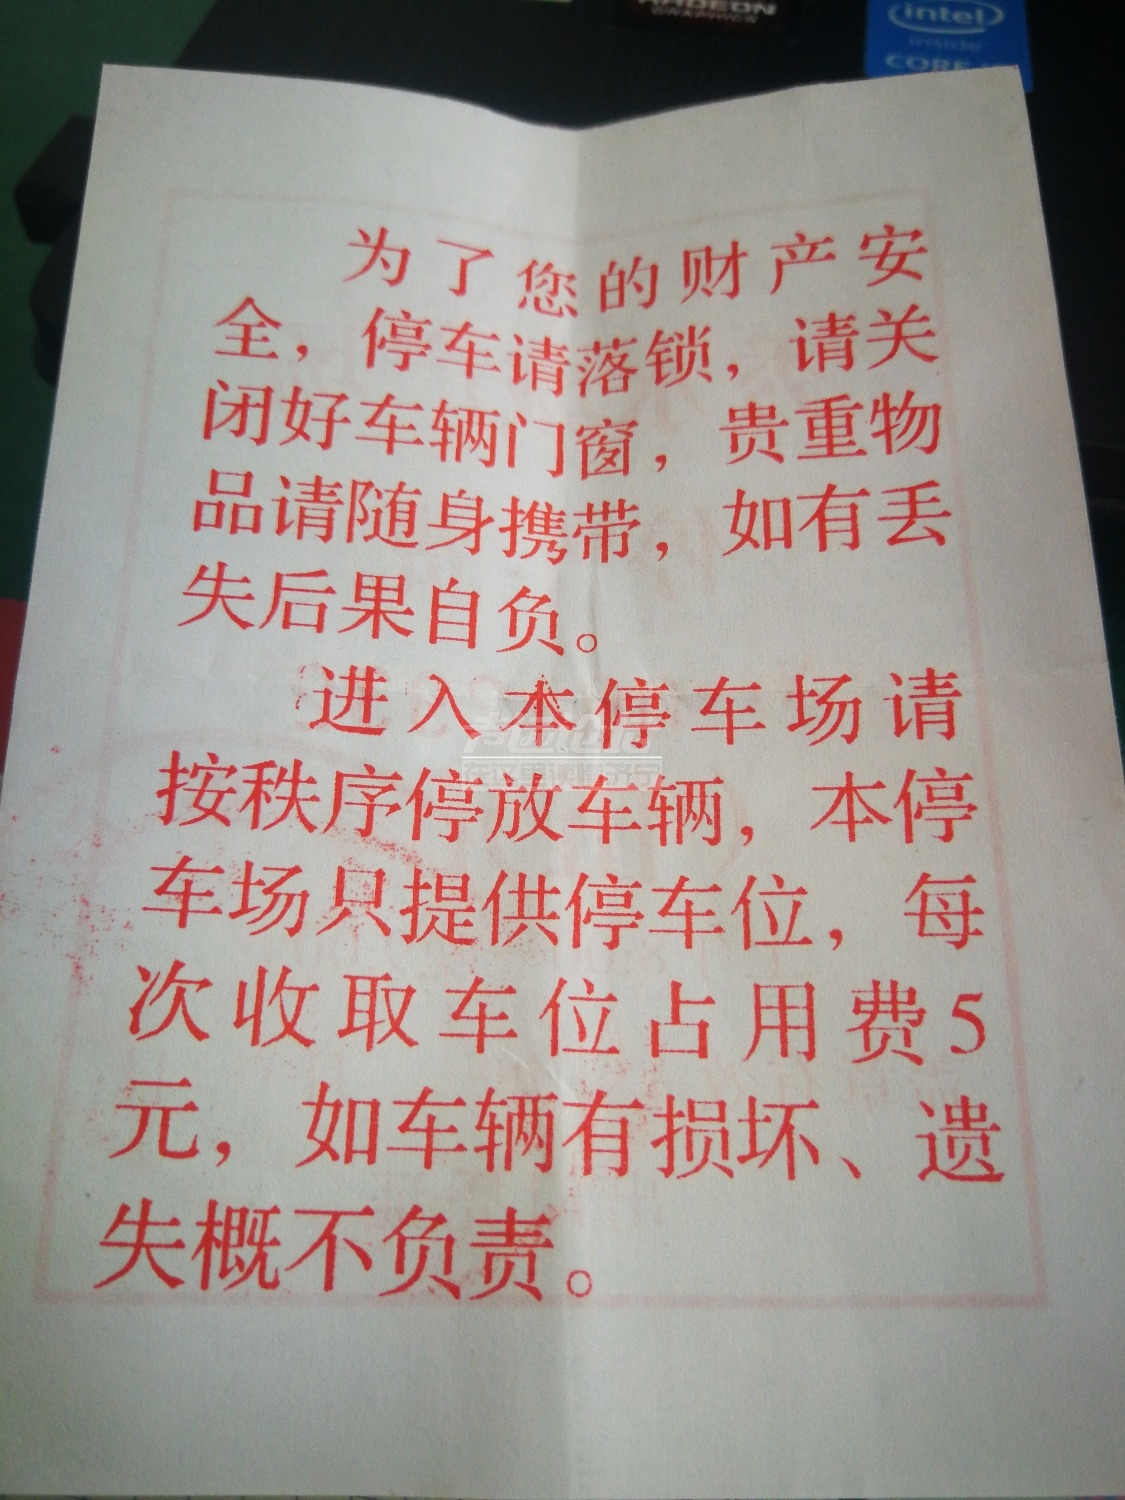 RADEON
GRAPHICS
intel
inside
CORE
为了您的财产安
全，停车请落锁，请关
闭好车辆门窗，贵重物
品请随身携带，如有丢
失后果自负。
进入本停车场请
按秩序停放车辆，本停
车场只提供停车位，每
次收取车位占用费5
元，如车辆有损坏、遗
失概不负责。